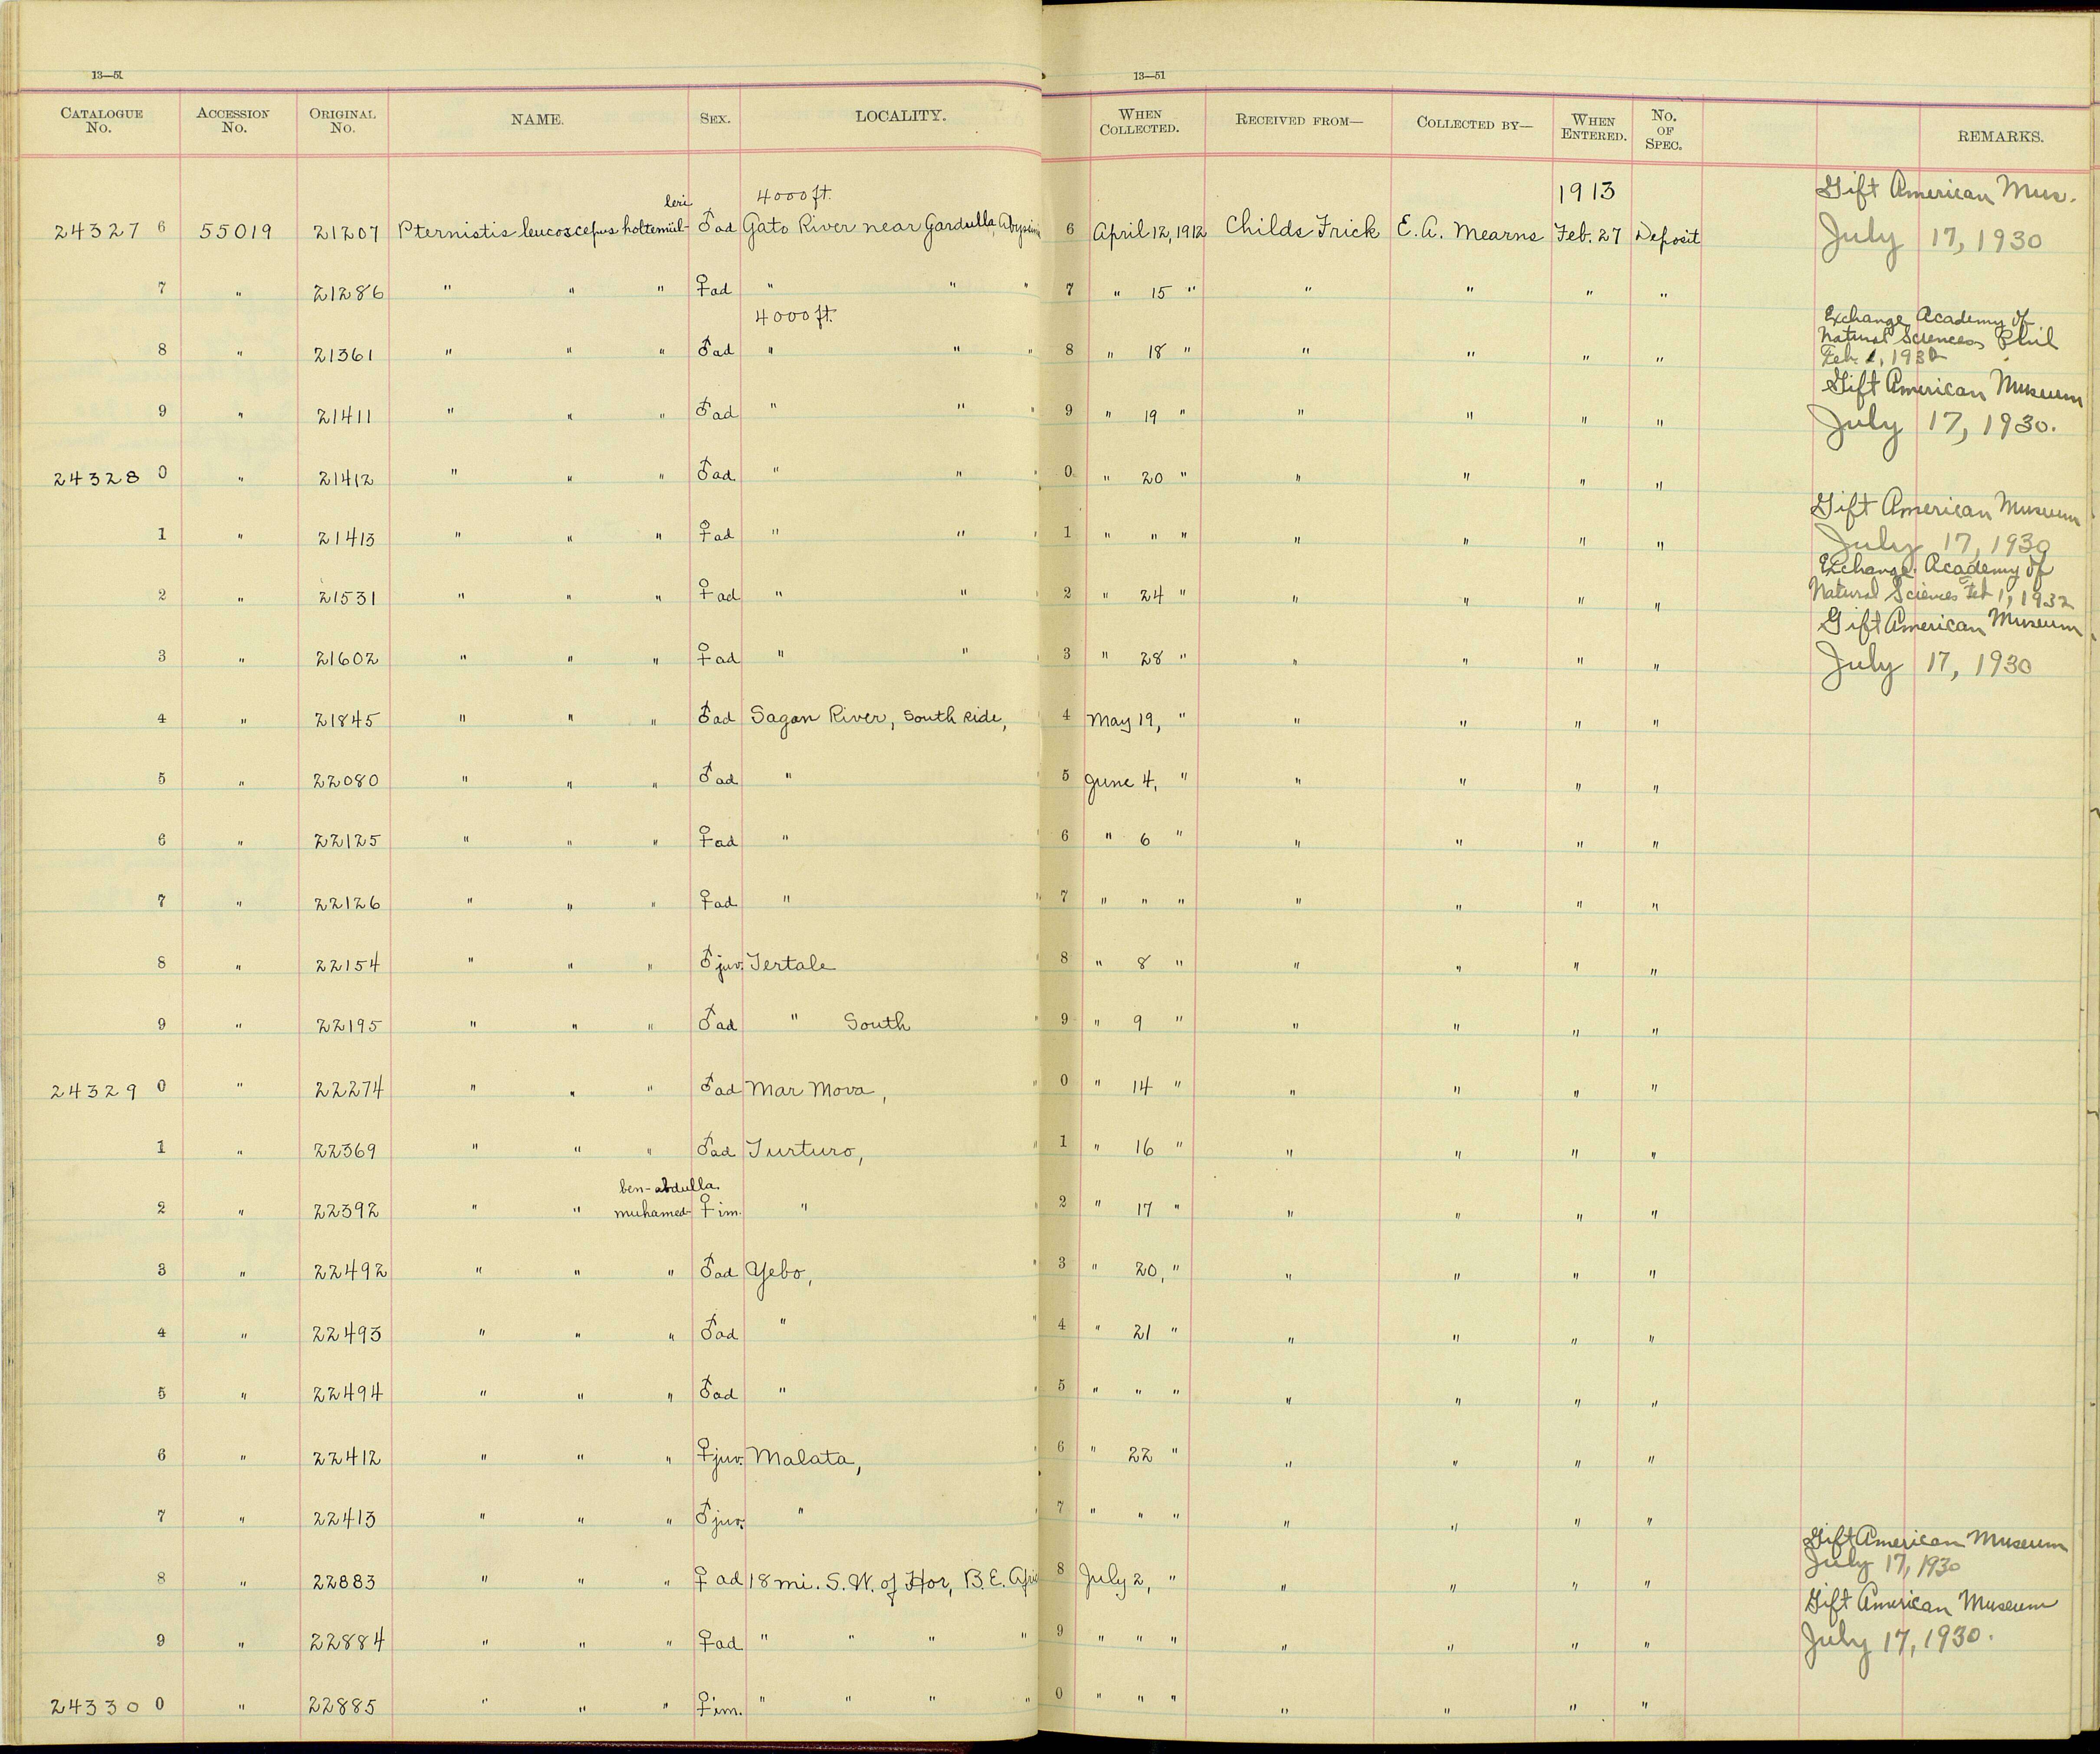 13—51
13—51
CATALOGUE No. ACCESSION No. ORIGINAL No. NAME. SEX. LOCALITY. WHEN COLLECTED. RECEIVED FROM— COLLECTED BY— WHEN ENTERED. No. OF SPEC. REMARKS.
leri 4000 ft. 1913 Gift American Mus.
24327 6 55019 21207 Pternistis leucoscepus holtemül- ♂ ad Gato River near Gardulla, Abyssinia 6 April 12, 1912 Childs Frick E. A. Mearns Feb. 27 Deposit July 17, 1930
7 " 21286 " " " ♀ ad " " " 7 " 15 " " " " "
4000 ft. Exchange Academy of
8 " 21361 " " " ♂ ad " " " 8 " 18 " " " " " Natural Sciences Phil
Feb. 1, 1932
Gift American Museum
9 " 21411 " " " ♂ ad " " " 9 " 19 " " " " " July 17, 1930.
24328 0 " 21412 " " " ♂ ad. " " " 0 " 20 " " " " "
Gift American Museum
1 " 21413 " " " ♀ ad " " " 1 " " " " " " " July 17, 1930
Exchange Academy of
2 " 21531 " " " ♀ ad " " 2 " 24 " " " " " Natural Sciences Feb 1, 1932
Gift American Museum
3 " 21602 " " " ♀ ad " " 3 " 28 " " " " " July 17, 1930
4 " 21845 " " " ♂ ad Sagan River, South side, 4 May 19, " " " " "
5 " 22080 " " " ♂ ad " " 5 June 4, " " " " "
6 " 22125 " " " ♀ ad " " 6 " 6 " " " " "
7 " 22126 " " " ♀ ad " " 7 " " " " " " "
8 " 22154 " " " ♂ juv. Tertale " 8 " 8 " " " " "
9 " 22195 " " " ♂ ad " South " 9 " 9 " " " " "
24329 0 " 22274 " " " ♂ ad Mar Mora, " 0 " 14 " " " " "
1 " 22369 " " " ♂ ad Turturo, " 1 " 16 " " " " "
ben-abdulla.
2 " 22392 " " muhamed- ♀ im. " " 2 " 17 " " " " "
3 " 22492 " " " ♂ ad Yebo, " 3 " 20, " " " " "
4 " 22493 " " " ♂ ad " " 4 " 21 " " " " "
5 " 22494 " " " ♂ ad " " 5 " " " " " " "
6 " 22412 " " " ♀ juv. Malata, " 6 " 22 " " " " "
7 " 22413 " " " ♂ juv. " " 7 " " " " " " "
Gift American Museum
8 " 22883 " " " ♀ ad 18 mi. S. W. of Hor, B. E. Afri 8 July 2, " " " " " July 17, 1930
Gift American Museum
9 " 22884 " " " ♀ ad " " " " 9 " " " " " " " July 17, 1930.
24330 0 " 22885 " " " ♀ im. " " " " 0 " " " " " " "